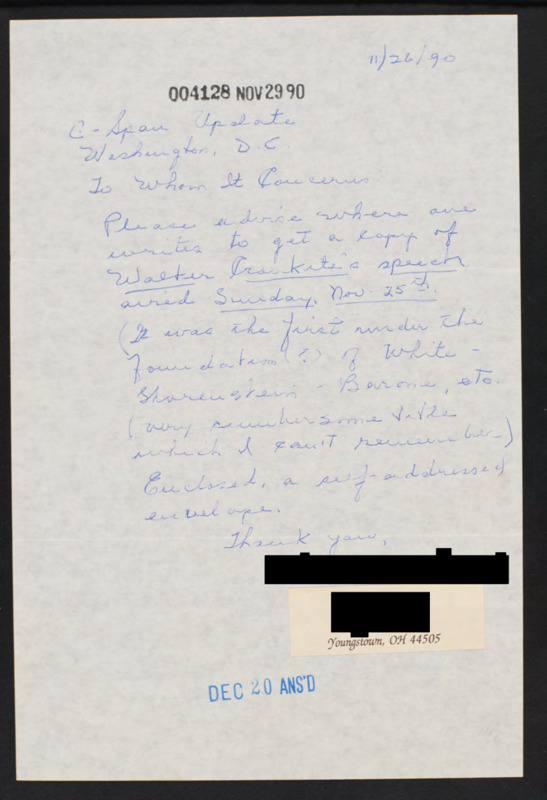 11/26/90
004128 NOV 29 90
C-Span Update
Washington, D.C.
To Whom It Concerns
Please advise where one
writes to get a copy of
Walter Cronkite's speech
aired Sunday, Nov. 25th.
(It was the first under the
foundation (?) of White -
Shorenstein - Barone, etc.
(very cumbersome title
which I can't remember)
Enclosed, a self-addressed
envelope.
Thank you,
Youngstown, OH 44505
DEC 20 ANS'D